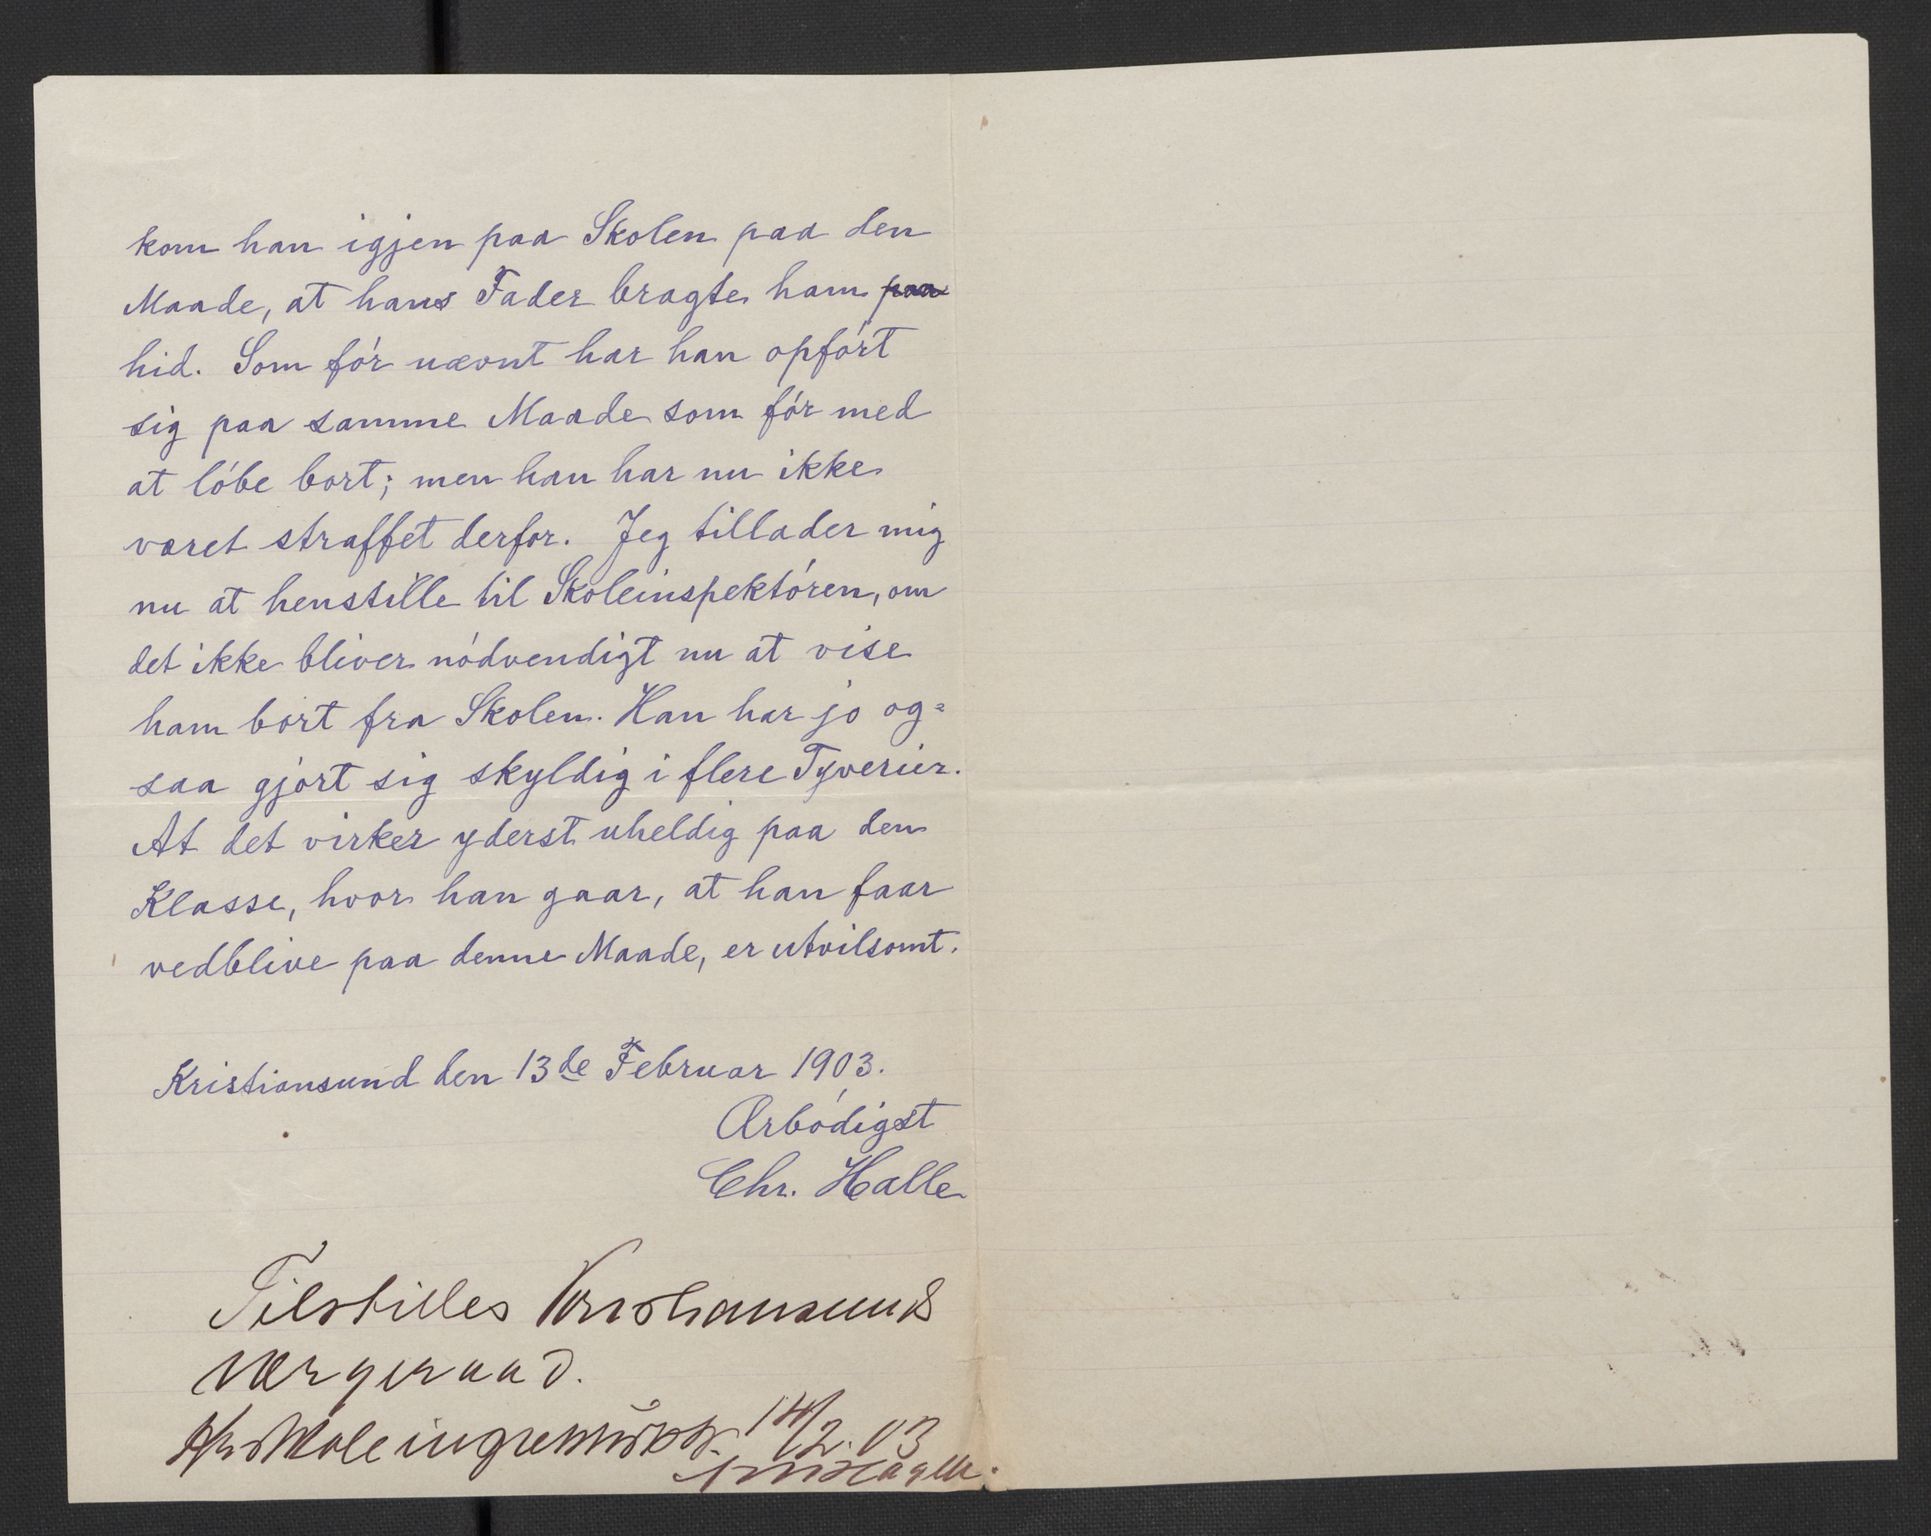 kom han igjen paa Skolen paa den
Maade, at hans Fader bragte ham paa
hid. Som før nævnt har han opført
sig paa samme Maade som før med
at løbe bort; men han har nu ikke
været straffet derfor. Jeg tillader mig
nu at henstille til Skoleinspektøren, om
det ikke bliver nødvendigt nu at vise
ham bort fra Skolen. Han har jo og=
saa gjort sig skyldig i flere Tyverier.
At det virker yderst uheldig paa den
Klasse, hvor han gaar, at han faar
vedblive paa denne Maade, er utvilsomt.
Kristiansund den 13de Februar 1903.
Ærbødigst
Chr. Halle
Tilstilles Kristiansunds
Værgeraad.
14/2.03